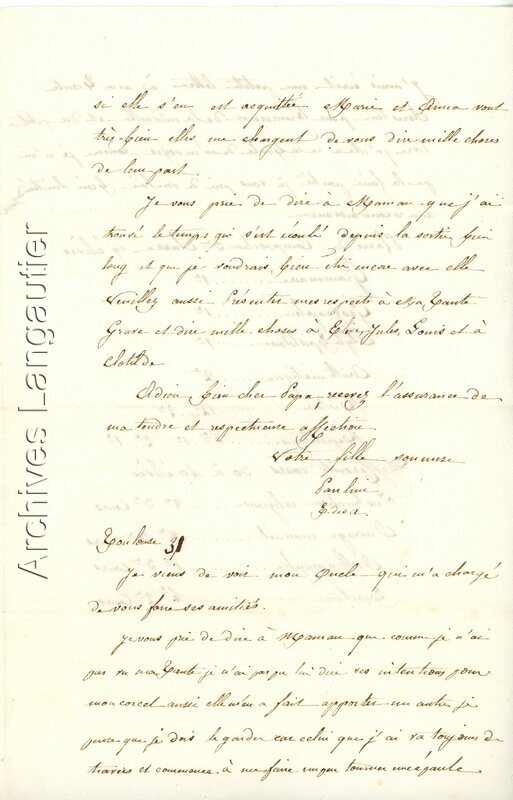 si elle s'en est acquittée. Marie et Anna vont
très-bien elles, me chargent de vous dire mille choses
de leur part.
Je vous prie de dire à Maman que j'ai
trouvé le temps qui s'est écoulé depuis la sortie bien
long et que je voudrais bien être encore avec elle
Veuillez aussi Présenter mes respects à Ma Tante
Grave et dire mille choses à Jules, Louis et à
Clotilde
Adieu bien cher Papa, recevez l'assurance de
ma tendre et respectueuse affection
Votre fille soumise
Pauline
Toulouse 31
Je viens de voir mon Oncle qui m'a chargé
de vous faire ses amitiés.
Je vous prie de dire à Maman que comme je n'ai
pas vu ma Tante je n'ai pas pu lui dire ses intentions pour
mon corcet aussi elle m'en a fait apporter un autre je
pense que je dois le garder car celui que j'ai va toujours de
travers et commence à me faire tourner une épaule.
Archives Langautier